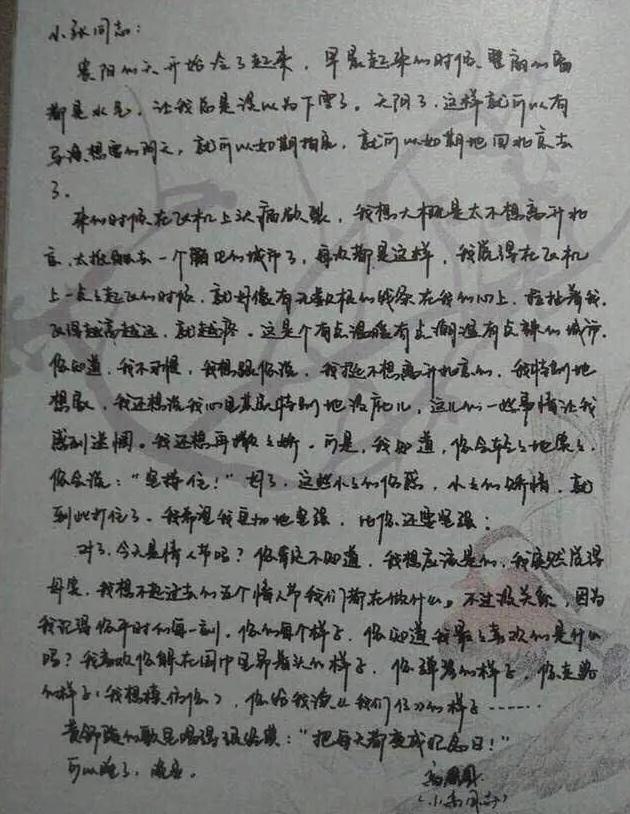 小张同志：
贵阳的天开始冷了起来，早晨起来的时候，里的窗
都是水气，让我总是误以为下雪了。天阴了，这样就可以有
想要的阴天，就可以如期拍完，就可以如期地回北京去
了。
来的时候在飞机上头痛欲裂，我想大概是太不想离开北
京，太去一个陌生的城市了，每次都是这样，我觉得在飞机
上一点点起飞的时候，就好像有无数根的线系在我的心上，拉扯着我，
飞得越高越远，就越疼。这是个有点温暖有点潮湿有点辣的城市。
你知道，我不习惯，我想跟你说，我挺不想离开北京的，我特别地
想家，我还想说我心里其实特别地没底儿，这儿的一些事情让我
感到迷惘。我还想再撒撒娇，可是，我知道，你会轻轻地笑笑，
你会说：“坚持住！”好了，这些小小的伤感，小小的矫情，就
到此打住了。我希望我更加地坚强，比你还要坚强；
对了，今天是情人节吗？你肯定不知道，我想应该是的，我突然觉得
好笑，我想不起过去的五个情人节我们都在做什么。不过没关系，因为
我记得你平时的每一刻，你的每个样子，你知道我最喜欢的是什么
吗？我喜欢你躺在图中里昂着头的样子，你弹琴的样子，你走路
的样子（我想模仿你），你给我读《我们仨》的样子……
黄舒骏的歌里唱得很好：“把每天都变成纪念日！”
可以睡了，晚安。
（小高同志）